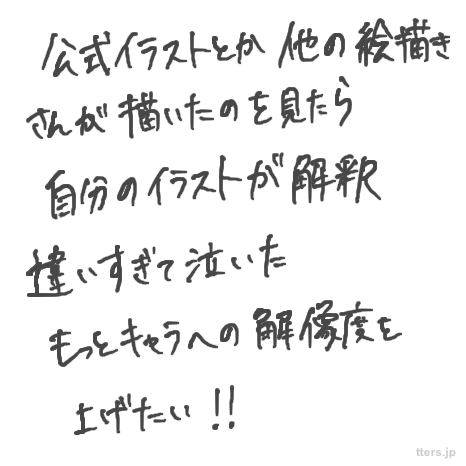 公式イラストとか他の絵描き
さんが描いたのを見たら
自分のイラストが解釈
違いすぎて泣いた
もっとキャラへの解像度を
上げたい!!
tters.jp